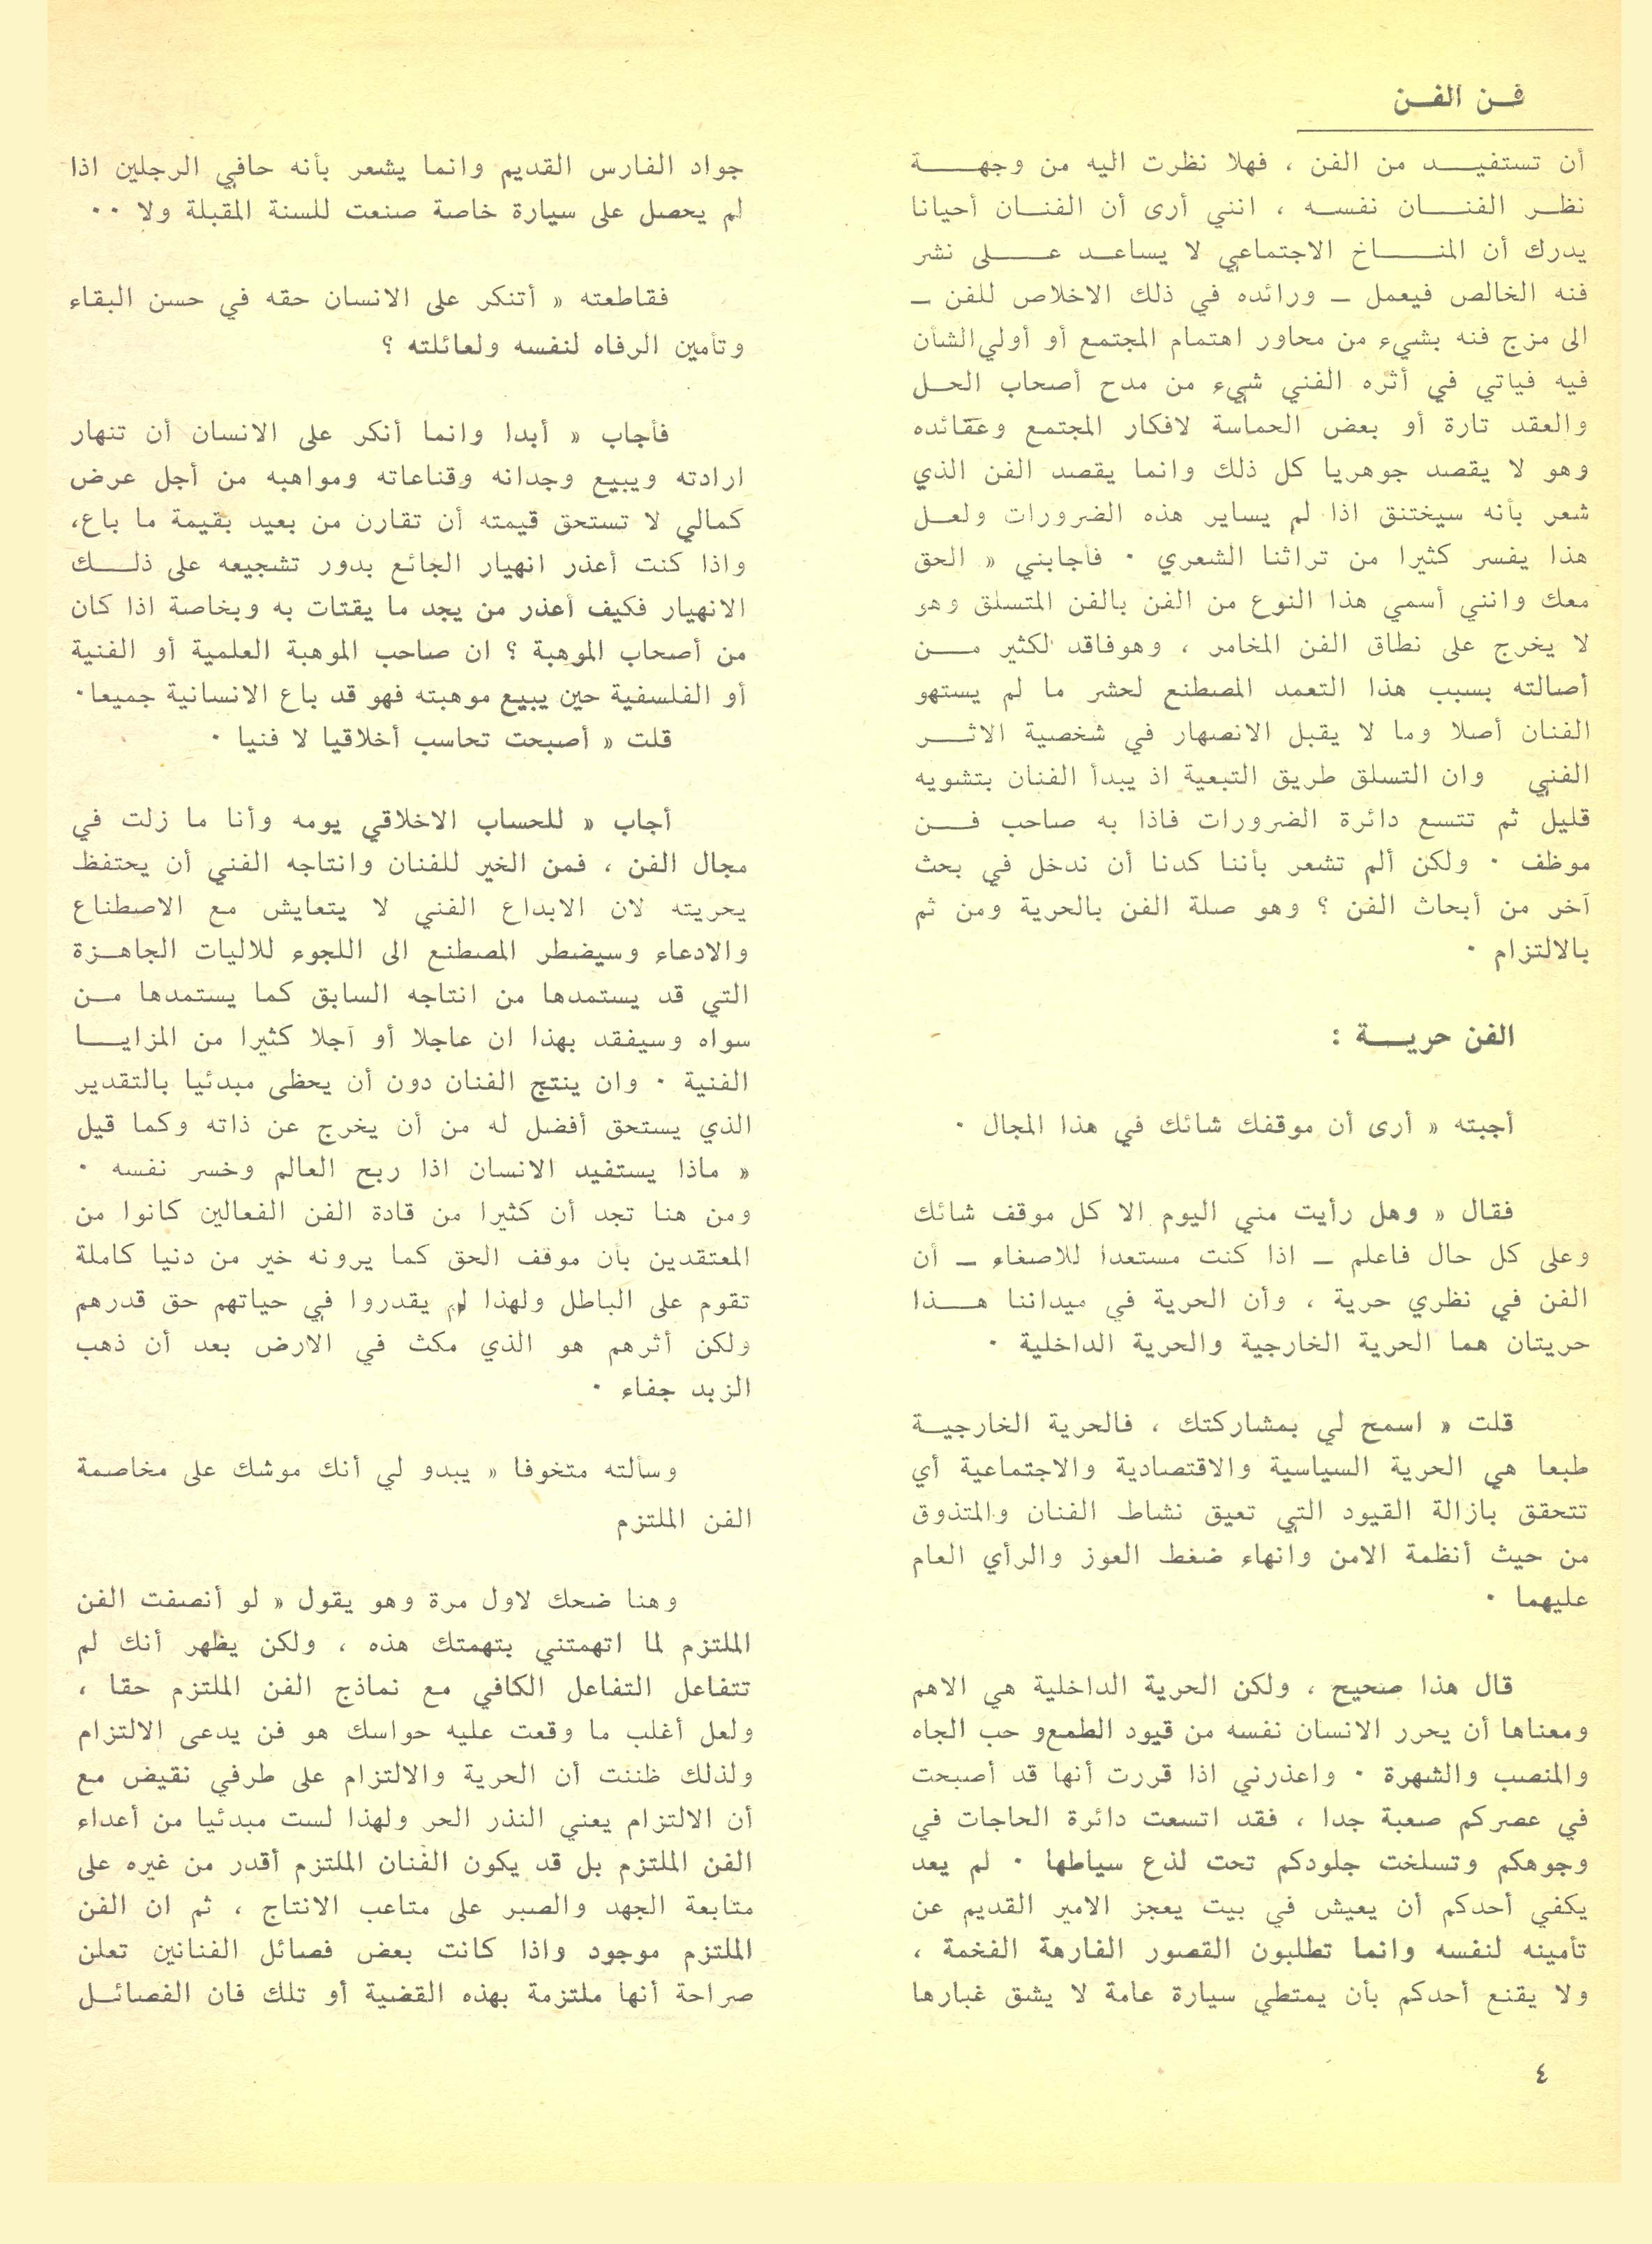 فـن الفـن
أن تستفيـــد من الفن ، فهلا نظرت اليه من وجهـــة
نظـر الفنـــان نفسـه ، انني أرى أن الفنـان أحيانا
يدرك أن المنـــاخ الاجتماعي لا يساعـد عـــلى نشر
فنه الخالص فيعمل ــ ورائده في ذلك الاخلاص للفن ــ
الى مزج فنه بشيء من محاور اهتمام المجتمع أو أولي الشأن
فيه فياتي في أثره الفني شيء من مدح أصحاب الحـل
والعقد تارة أو بعض الحماسة لافكار المجتمع وعقائده
وهو لا يقصد جوهريا كل ذلك وانما يقصد الفن الذي
شعر بأنه سيختنق اذا لم يساير هذه الضرورات ولعـل
هذا يفسر كثيرا من تراثنا الشعري ٠ فأجابني « الحق
معك وانني أسمي هذا النوع من الفن بالفن المتسلق وهو
لا يخرج على نطاق الفن المخامر ، وهوفاقد لكثير مـن
أصالته بسبب هذا التعمد المصطنع لحشر ما لم يستهو
الفنان أصلا وما لا يقبل الانصهار في شخصية الاثـــر
الفني وان التسلق طريق التبعية اذ يبدأ الفنان بتشويه
قليل ثم تتسع دائرة الضرورات فاذا به صاحب فـن
موظف ٠ ولكن ألم تشعر بأننا كدنا أن ندخل في بحث
آخر من أبحاث الفن ؟ وهو صلة الفن بالحرية ومن ثم
بالالتزام ٠
الفن حريـــة :
أجبته « أرى أن موقفك شائك في هذا المجال ٠
فقال « وهل رأيت مني اليوم الا كل موقف شائك
وعلى كل حال فاعلم ــ اذا كنت مستعدا للاصغاء ــ أن
الفن في نظري حرية ، وأن الحرية في ميداننا هـــذا
حريتان هما الحرية الخارجية والحرية الداخلية ٠
قلت « اسمح لي بمشاركتك ، فالحرية الخارجيـة
طبعا هي الحرية السياسية والاقتصادية والاجتماعية أي
تتحقق بازالة القيود التي تعيق نشاط الفنان والمتذوق
من حيث أنظمة الامن وانهاء ضغط العوز والرأي العام
عليهما ٠
قال هذا صحيح ، ولكن الحرية الداخلية هي الاهم
ومعناها أن يحرر الانسان نفسه من قيود الطمع و حب الجاه
والمنصب والشهرة ٠ واعذرني اذا قررت أنها قد أصبحت
في عصركم صعبة جدا ، فقد اتسعت دائرة الحاجات في
وجوهكم وتسلخت جلودكم تحت لذع سياطها ٠ لم يعد
يكفي أحدكم أن يعيش في بيت يعجز الامير القديم عن
تأمينه لنفسه وانما تطلبون القصور الفارهة الفخمة ،
ولا يقنع أحدكم بأن يمتطي سيارة عامة لا يشق غبارها
جواد الفارس القديم وانما يشعر بأنه حافي الرجلين اذا
لم يحصل على سيارة خاصة صنعت للسنة المقبلة ولا ٠٠
فقاطعته « أتنكر على الانسان حقه في حسن البقاء
وتأمين الرفاه لنفسه ولعائلته ؟
فأجاب « أبدا وانما أنكر على الانسان أن تنهار
ارادته ويبيع وجدانه وقناعاته ومواهبه من أجل عرض
كمالي لا تستحق قيمته أن تقارن من بعيد بقيمة ما باع،
واذا كنت أعذر انهيار الجائع بدور تشجيعه على ذلـــك
الانهيار فكيف أعذر من يجد ما يقتات به وبخاصة اذا كان
من أصحاب الموهبة ؟ ان صاحب الموهبة العلمية أو الفنية
أو الفلسفية حين يبيع موهبته فهو قد باع الانسانية جميعا٠
قلت « أصبحت تحاسب أخلاقيا لا فنيا ٠
أجاب « للحساب الاخلاقي يومه وأنا ما زلت في
مجال الفن ، فمن الخير للفنان وانتاجه الفني أن يحتفظ
يحريته لان الابداع الفني لا يتعايش مع الاصطناع
والادعاء وسيضطر المصطنع الى اللجوء للاليات الجاهـزة
التي قد يستمدها من انتاجه السابق كما يستمدها مـن
سواه وسيفقد بهذا ان عاجلا أو آجلا كثيرا من المزايـــا
الفنية ٠ وان ينتج الفنان دون أن يحظى مبدئيا بالتقدير
الذي يستحق أفضل له من أن يخرج عن ذاته وكما قيل
« ماذا يستفيد الانسان اذا ربح العالم وخسر نفسه ٠
ومن هنا تجد أن كثيرا من قادة الفن الفعالين كانوا من
المعتقدين بأن موقف الحق كما يرونه خير من دنيا كاملة
تقوم على الباطل ولهذا لم يقدروا في حياتهم حق قدرهم
ولكن أثرهم هو الذي مكث في الارض بعد أن ذهب
الزبد جفاء ٠
وسألته متخوفا « يبدو لي أنك موشك على مخاصمة
الفن الملتزم
وهنا ضحك لاول مرة وهو يقول « لو أنصفت الفن
الملتزم لما اتهمتني بتهمتك هذه ، ولكن يظهر أنك لم
تتفاعل التفاعل الكافي مع نماذج الفن الملتزم حقا ،
ولعل أغلب ما وقعت عليه حواسك هو فن يدعى الالتزام
ولذلك ظننت أن الحرية والالتزام على طرفي نقيض مع
أن الالتزام يعني النذر الحر ولهذا لست مبدئيا من أعداء
الفن الملتزم بل قد يكون الفنان الملتزم أقدر من غيره على
متابعة الجهد والصبر على متاعب الانتاج ، ثم ان الفن
الملتزم موجود واذا كانت بعض فصائل الفنانين تعلن
صراحة أنها ملتزمة بهذه القضية أو تلك فان الفصائـل
٤